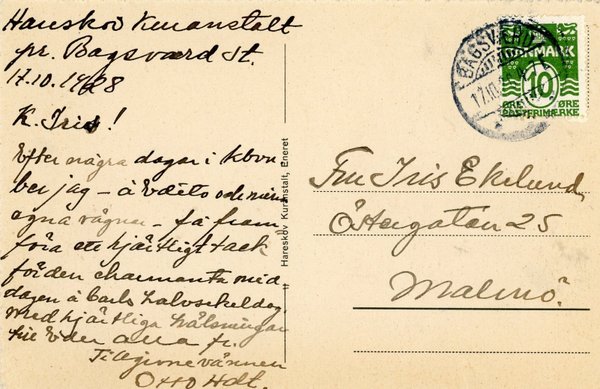 Hareskov Kuranstalt
pr. Bagsværd St.
17.10.1928
K. Iris!
Efter några dagar i Kbvn
ber jag – å Edéits och mina
egna vägnar – få fram
föra ett hjärtligt tack
för den charmanta mid
dagen å Carls halvsekeldag,
med hjärtliga hälsningar
till Eder alla fr.
vännen
Otto Hdt.
Hareskov Kuranstalt, Eneret
BAGSVÆRD
17.10.
DANMARK
10
ØRE ØRE
POSTFRIMÆRKE
Fru Iris Eklund,
Östergatan 25
Malmö.